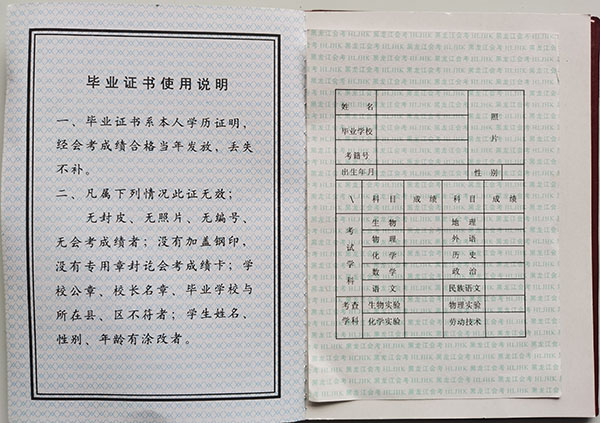 毕业证书使用说明
一、毕业证书系本人学历证明，
经会考成绩合格当年发放，丢失
不补。
二、凡属下列情况此证无效；
无封皮、无照片、无编号、
无会考成绩者；没有加盖钢印，
没有专用章封讫会考成绩卡；学
校公章、校长名章、毕业学校与
所在县、区不符者；学生姓名、
性别、年龄有涂改者。
黑龙江会考 HLJHK
姓 名
毕业学校
考籍号
照片
出生年月 性 别
\ 科 目 成 绩 科 目 成 绩
考试学科
生 物 地 理
物 理 外 语
化 学 历 史
数 学 政 治
语 文 民族语文
考查学科
生物实验 物理实验
化学实验 劳动技术